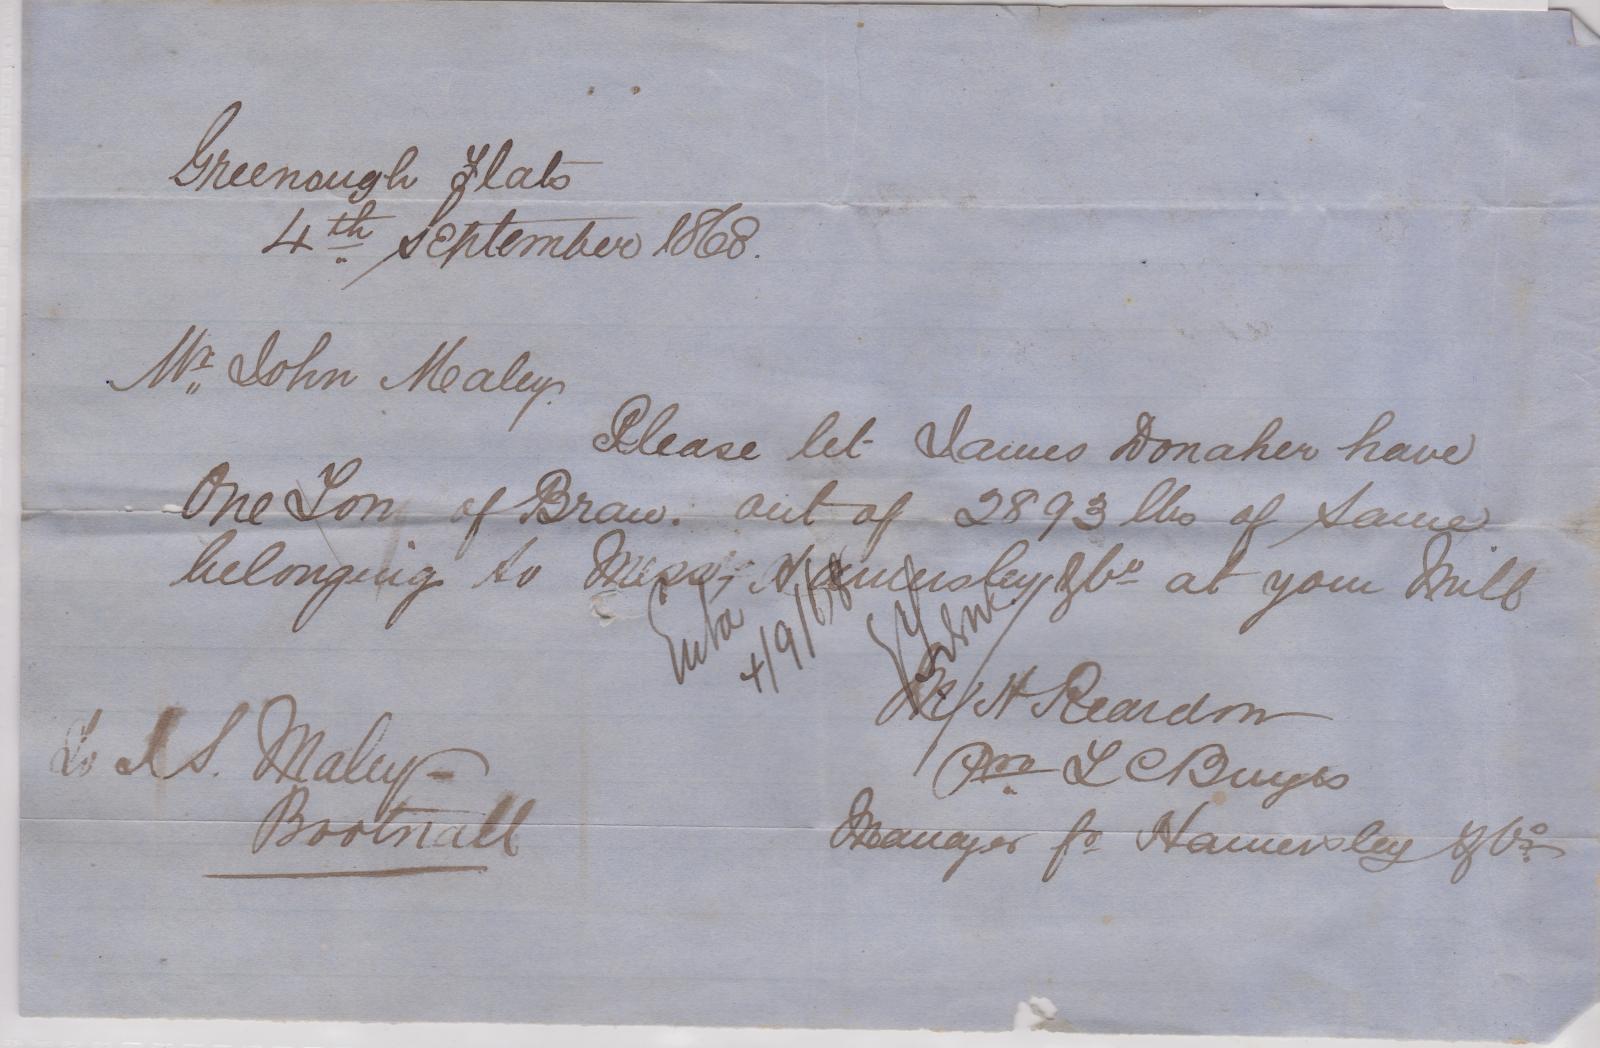 Greenough Flats
4th September 1868.
Mr. John Maley.
Please let James Donaher have
One Ton of Bran. out of 2893 lbs of same
belonging to Messrs Hamersley & Co at your Mill
4/9/68
H Reardon
Pro L C Burges
To J S. Maley
Bootnall
Manager for Hamersley & Co